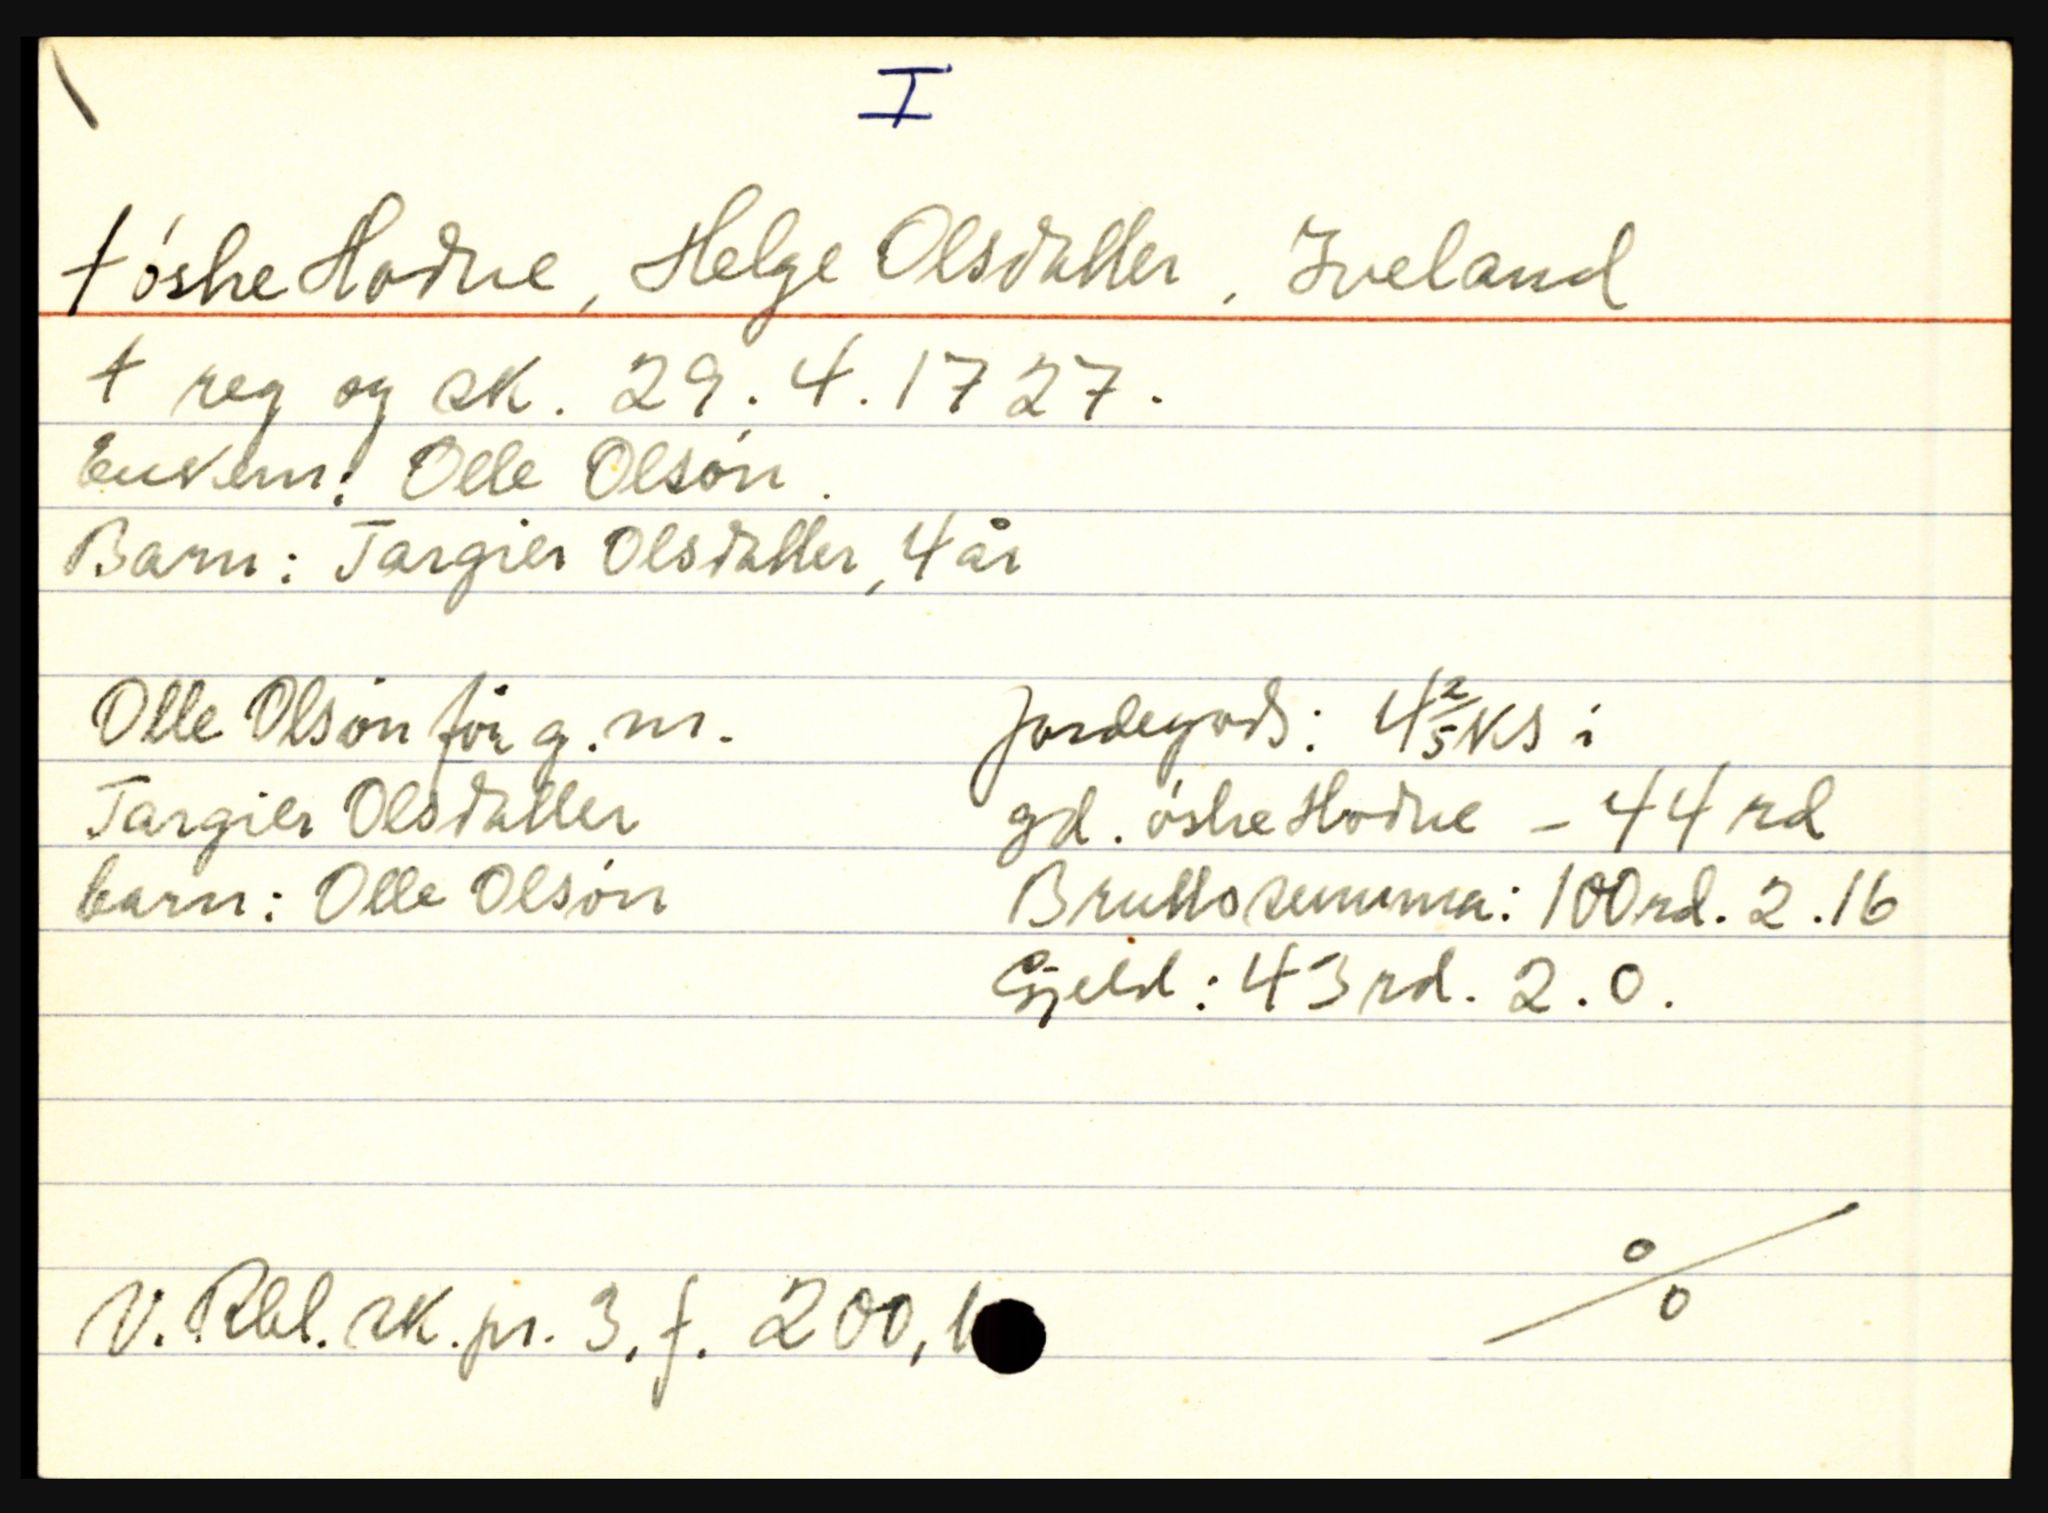 I
† óshe Hodne, Helge Olsdatter, Iveland
† reg og sk. 29.4.1727.
Enkem: Olle Olsón.
Barn: Targier Olsdatter, 4 år
Olle Olsón för g. m.
Targier Olsdatter
barn: Olle Olsón
Jordegods: 4 2/5 ks i
gd. óshe Hodne - 44 rd
Bruttosumma: 100 rd. 2.16
Gjeld: 43 rd. 2.0.
V. Rbl. sk. pr. 3, f. 200,
o/o